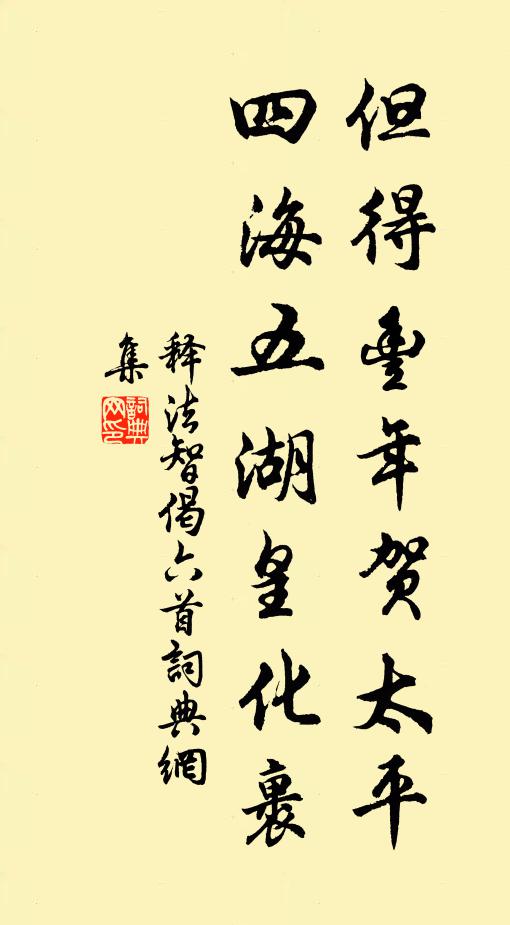 但得豊年贺太平
四海五湖皇化裏
释法智偈六首詞典網
集
詞典网印